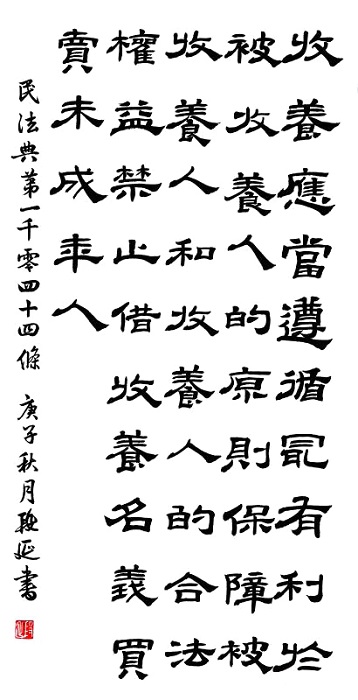 收養應當遵循冣有利於
被收養人的原則保障被
收養人和收養人的合法
權益禁止借收養名義買
賣未成年人
民法典第一千零四十四條 庚子秋月延書